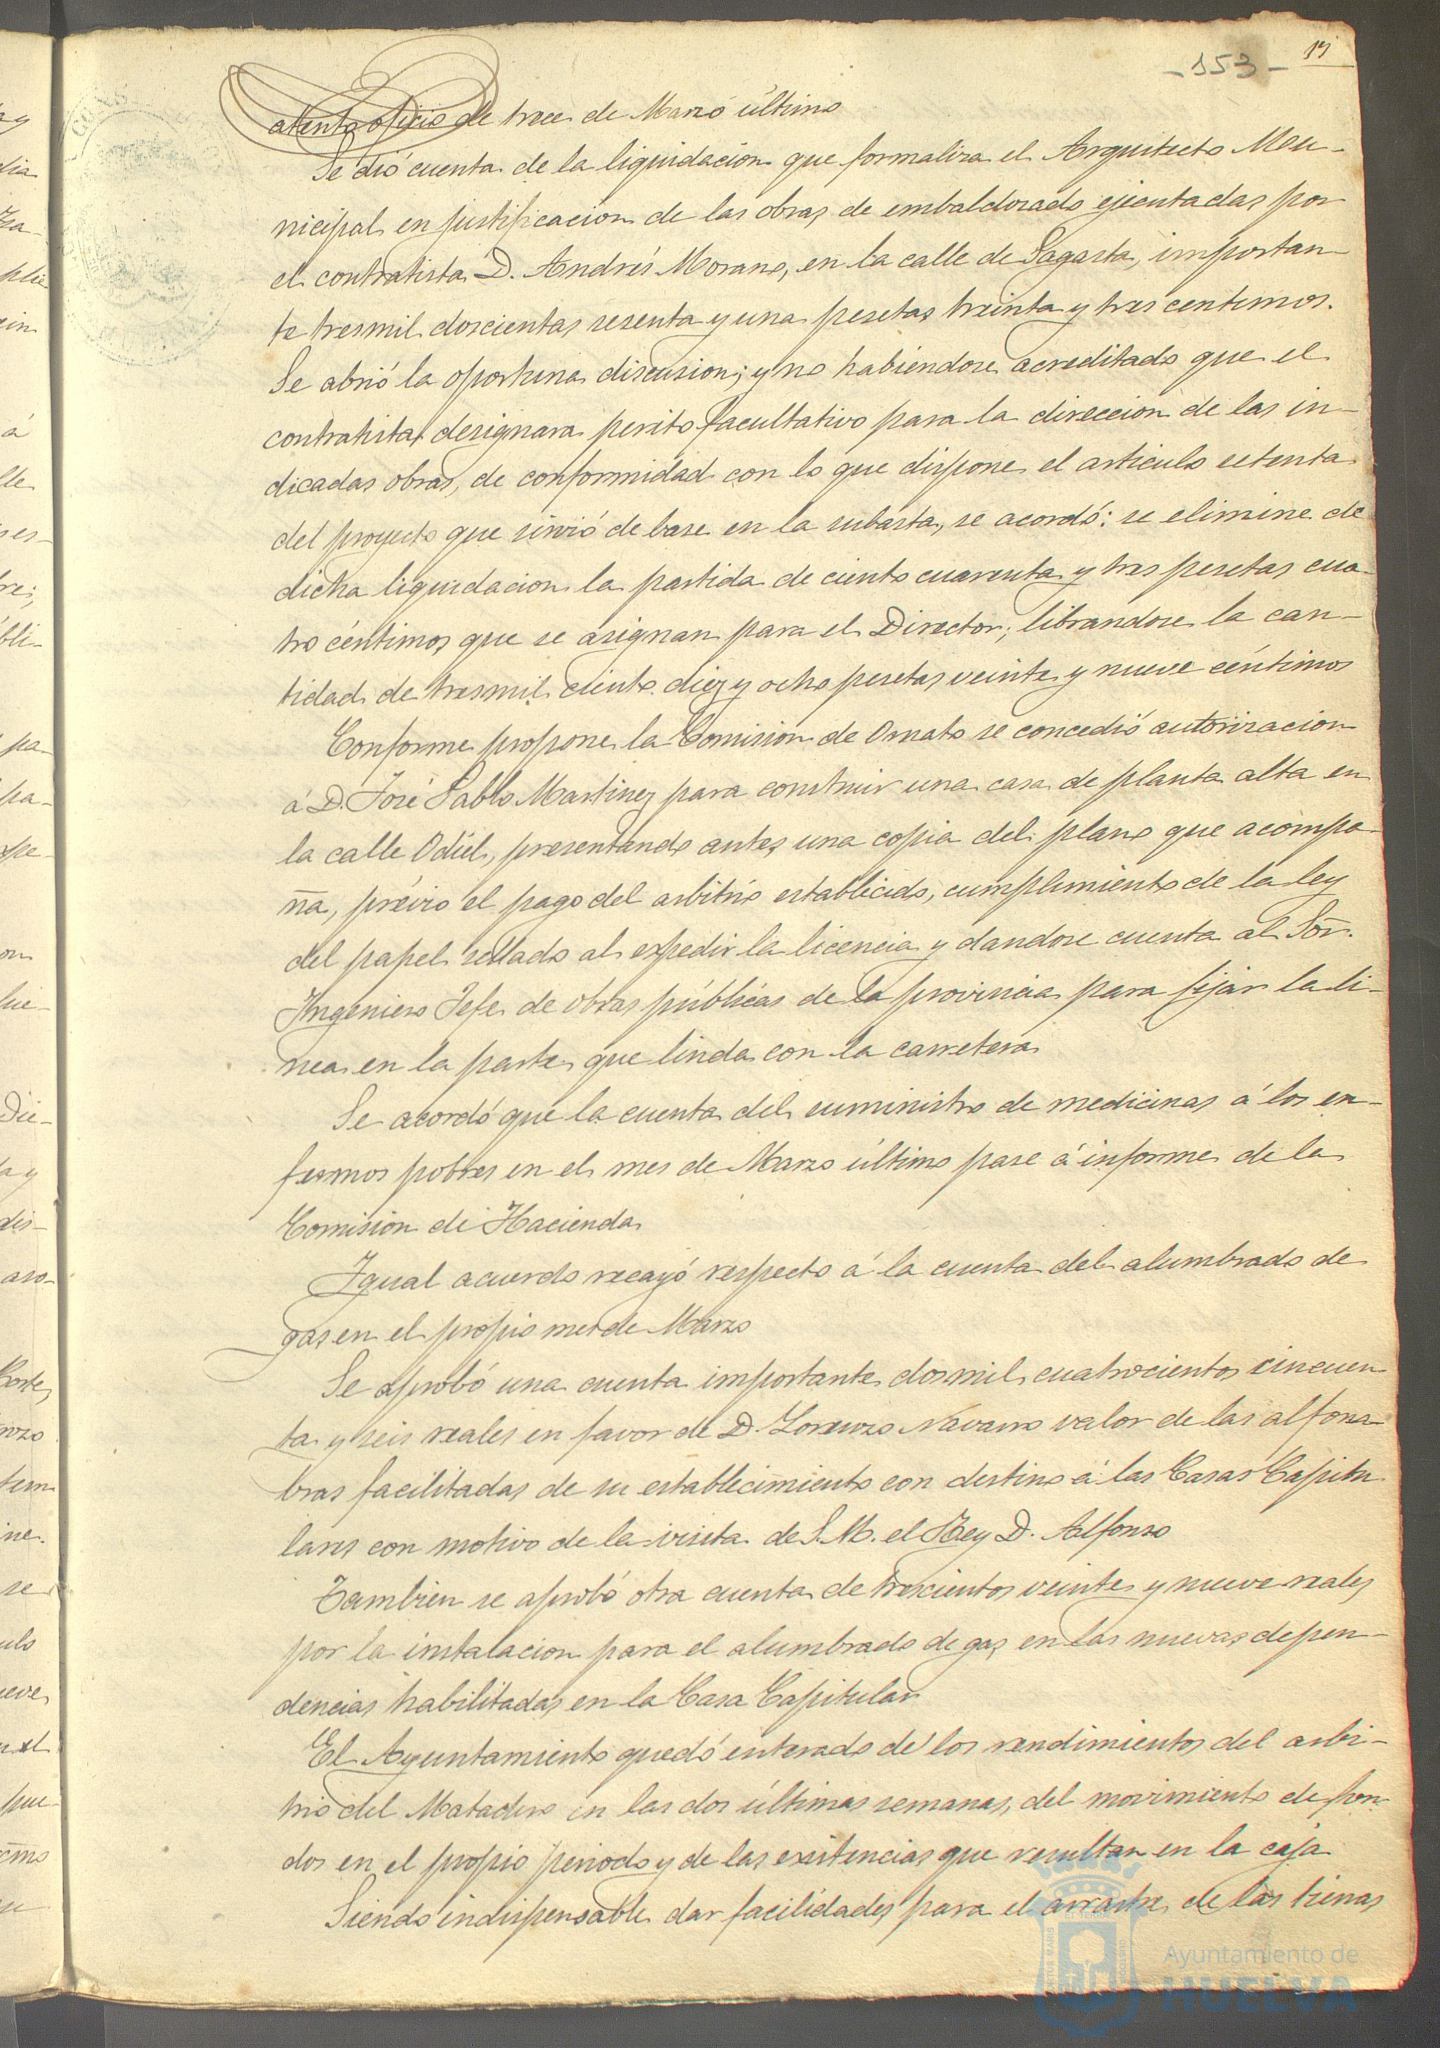 -153- 17
atento oficio de trece de Marzo último
Se dió cuenta de la liquidacion que formaliza el Arquitecto Mu-
nicipal en justificacion de las obras de embaldosado ejecutadas por
el contratista D. Andrés Morano, en la calle de Sagasta, importan-
te tresmil doscientas sesenta y una pesetas treinta y tres centimos.
Se abrió la oportuna discusion; y no habiendose acreditado que el
contratista designara perito facultativo para la direccion de las in-
dicadas obras, de conformidad con lo que dispone el articulo setenta
del proyecto que sirvió de base en la subasta, se acordó: se elimine de
dicha liquidacion la partida de ciento cuarenta y tres pesetas cua-
tro céntimos que se asignan para el Director; librandose la can-
tidad de tresmil ciento diez y ocho pesetas veinte y nueve céntimos
Conforme propone la Comision de Ornato se concedió autorizacion
á D. José Pablo Martinez para construir una casa de planta alta en
la calle Odiel, presentando antes una copia del plano que acompa-
ña, prévio el pago del arbitrio establecido, cumplimiento de la ley
del papel sellado al expedir la licencia y dandose cuenta al Sõr.
Ingeniero Jefe de obras públicas de la provincia para fijar la li-
nea en la parte que linda con la carretera
Se acordó que la cuenta del suministro de medicinas á los en-
fermos pobres en el mes de Marzo último pase á informe de la
Comision de Hacienda
Igual acuerdo recayó respecto á la cuenta del alumbrado de
gas en el propio mes de Marzo
Se aprobó una cuenta importante dosmil cuatrocientos cincuen
ta y seis reales en favor de D. Lorenzo Navarro valor de las alfom
bras facilitadas de su establecimiento con destino á las Casas Capitu
lares con motivo de la visita de S.M. el Rey D. Alfonso
Tambien se aprobó otra cuenta de trescientos veinte y nueve reales
por la instalacion para el alumbrado de gas en las nuevas depen-
dencias habilitadas en la Casa Capitular
El Ayuntamiento quedó enterado de los rendimientos del arbi-
trio del Matadero en las dos últimas semanas, del movimiento de fon
dos en el propio periodo y de las existencias que resultan en la caja
Siendo indispensable dar facilidades para el arrastre de las tierras
Ayuntamiento de
HUELVA